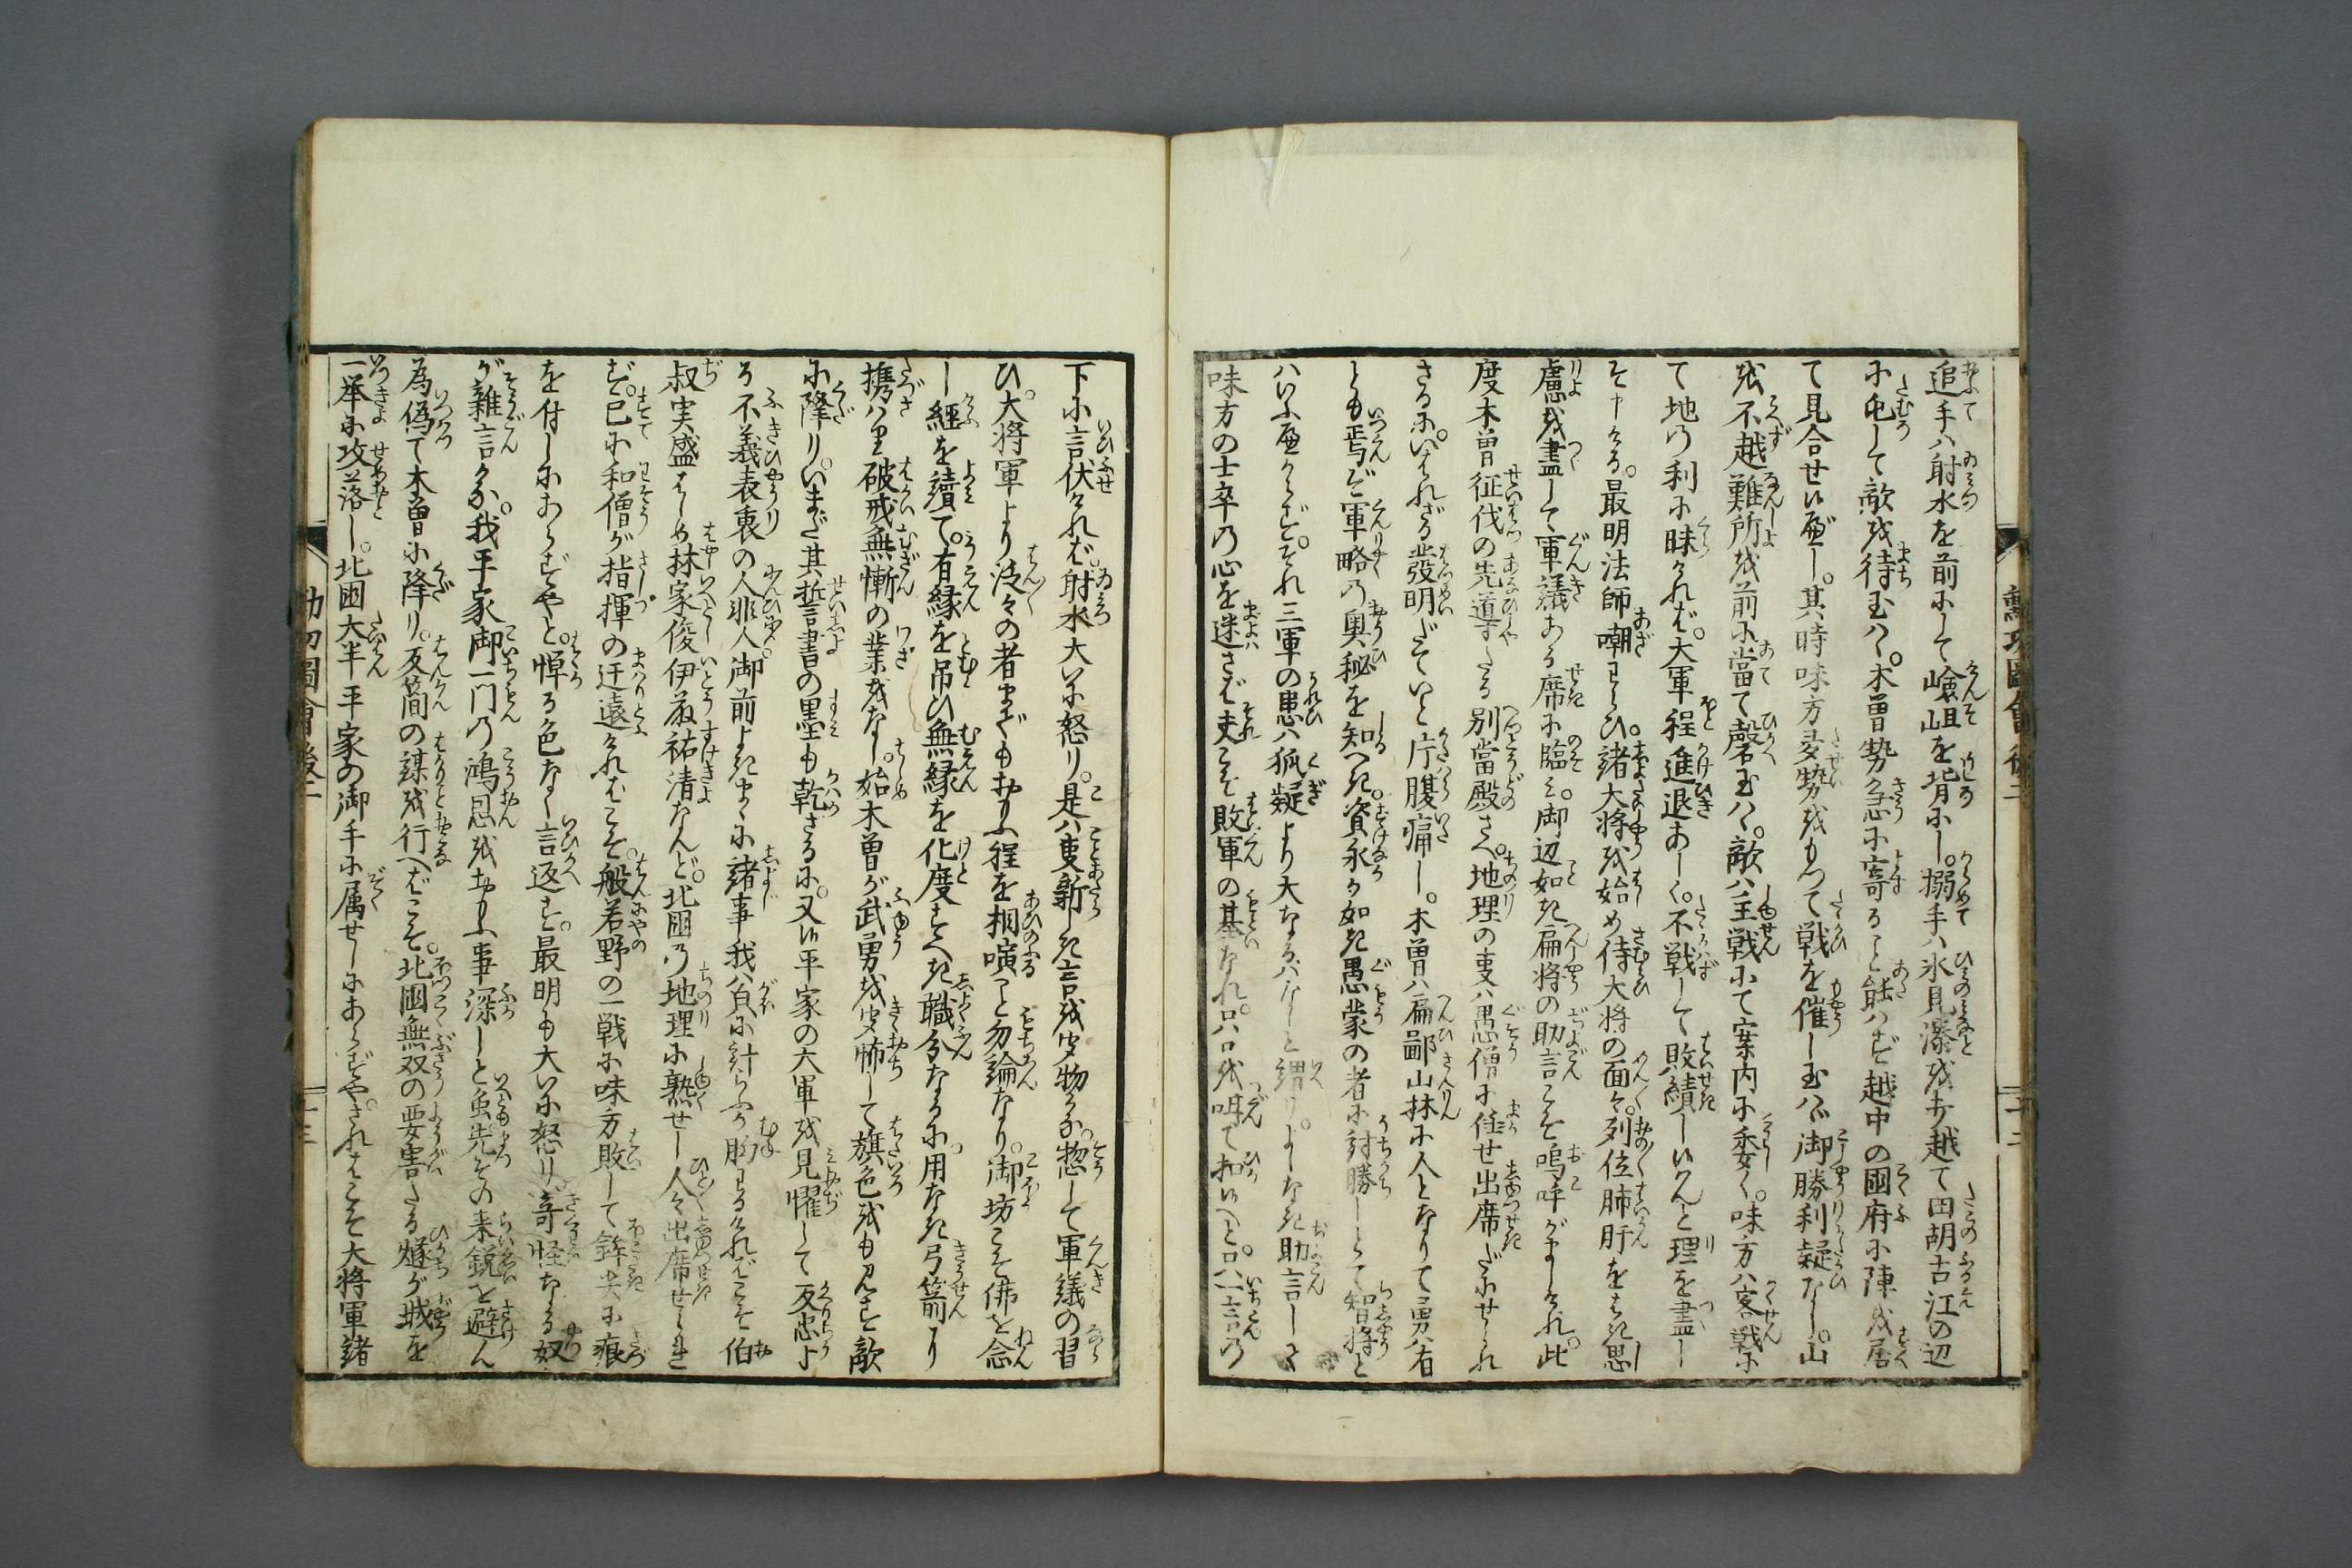 追手ハ射水を前にして嶮岨を背にし。搦手ハ氷見湊を打越て田胡古江の辺
に屯して敵を待玉ハヾ。木曽勢急に寄ること能ハず越中の國府に陣を居
て見合せ候べし。其時味方多勢をもつて戦を催し玉ハヾ御勝利疑なし。山
を不越難所を前に當て磬玉ハヾ。敵ハ主戦にて案内に委く。味方ハ客戦に
て地の利に昧ければ。大軍程進退あしく。不戦して敗績し候はんと理を盡し
て申ける。最明法師嘲わらひ。諸大将を始め侍大将の面々。列位肺肝をはき思
慮を盡して軍議ある席に臨み。御辺如き扁将の助言こそ嗚呼がましけれ。此
度木曽征伐の先導する別當殿さへ。地理の事ハ愚僧に任せ出席だにせられ
ざるに。いはれざる發明だていと片腹痛し。木曽ハ扁鄙山林に人となりて勇は有
とも焉ぞ軍略の奥秘を知べき。資永が如き愚蒙の者に討勝しとて智将と
ハいふべからず。それ三軍の患ハ狐疑より大なるハなしと謂り。よしなき助言しさ
味方の士卒の心を迷さば夫こそ敗軍の基なれ。只口を噤て扣候へと。只一言の
下に言伏ければ。射水大いに怒り。是ハ事新しき言を聞物かな。惣して軍議の習
ひ。大将軍より泛々の者までも思ふ程を相演ること勿論なり。御坊こそ佛を念
し經を讀て。有縁を吊ひ無縁を化度すべき職分なるに。用なき弓箭より
携ハり破戒無慚の業をなし。始木曽が武勇を聞怖して旗色をも見ず敵
に降り。いまだ其誓書の墨も乾ざるに。又候平家の大軍を見懼して反忠よ
る不義表裏の人非人。御前よきまゝに諸事我ハ貝に計らふが胸わるければこそ伯
叔実盛はじめ林家俊伊藤祐清なんど。北國の地理に熟せし人々出席せられ
ず。已に和僧が指揮の迂遠ければこそ。般若野の一戦に味方敗して鉾尖に痕
を付しにあらずやと。憚る色なく言返す。最明も大いに怒り。奇怪なる奴
が雜言かな。我平家御一門の鴻恩を思ふ事深しと虽先その来鋭を避ん
為偽て木曽に降り。反簡の謀を行へばこそ。北國無双の要害たる燧が城を
一挙に攻落し。北國大半平家の御手に属せしにあらずや。さればこそ大将軍諸